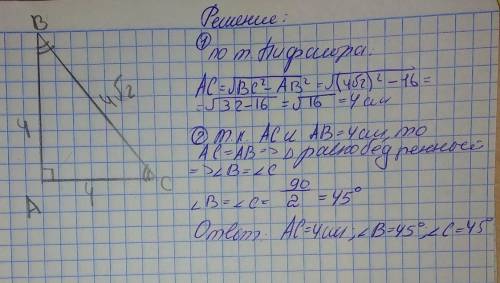 B
4
4√2
A
4
C
Решение:
①
по т. Пифагора.
AC=√BC²-AB²=√(4√2)²-16=
=√32-16=√16=4 см
② т.к. AC и AB=4см, то
AC=AB=>Δ равнобедренный
=>∠B=∠C
∠B=∠C= 90/2 =45°
Ответ: AC=4см, ∠B=45°, ∠C=45°